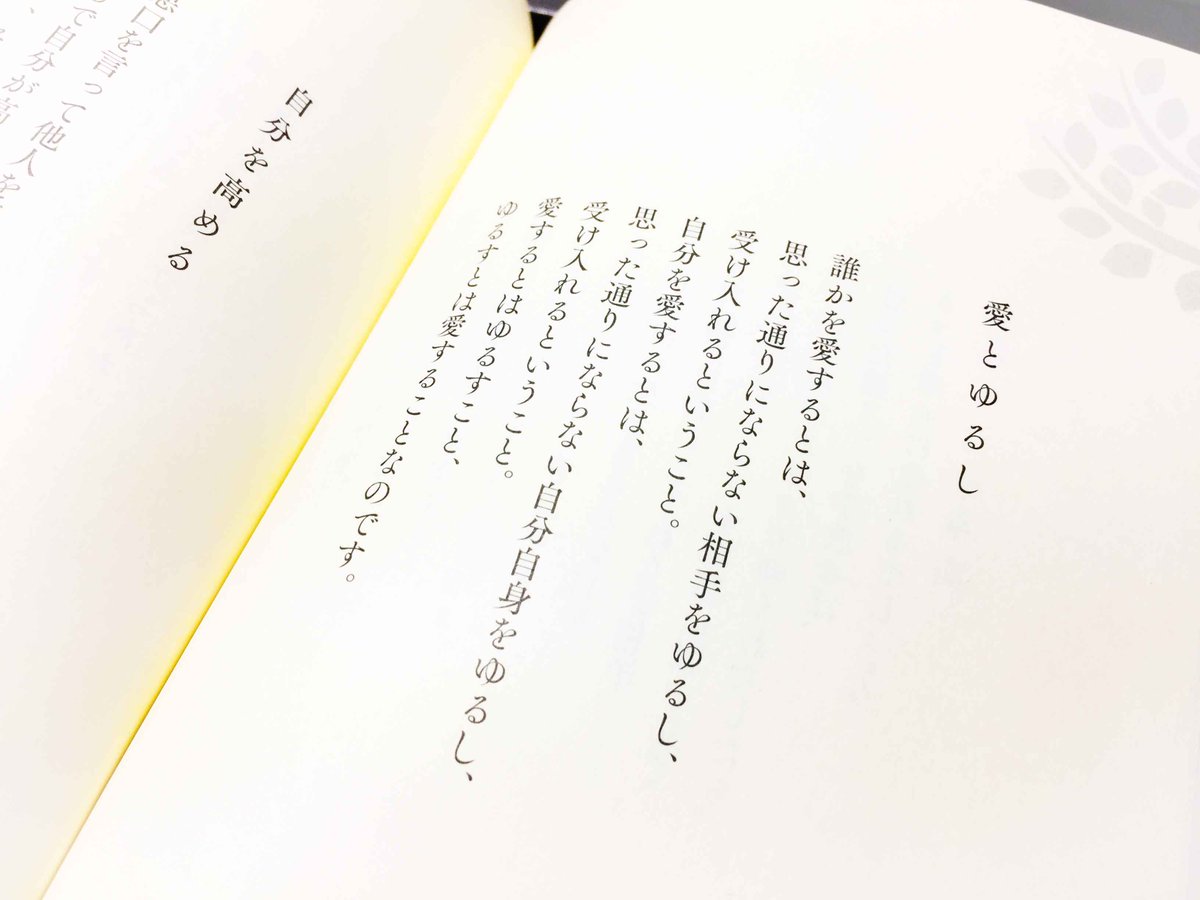 愛とゆるし
誰かを愛するとは、
思った通りにならない相手をゆるし、
受け入れるということ。
自分を愛するとは、
思った通りにならない自分自身をゆるし、
受け入れるということ。
愛するとはゆるすこと、
ゆるすとは愛することなのです。
自分を高める
口を言って他人を
で自分が高